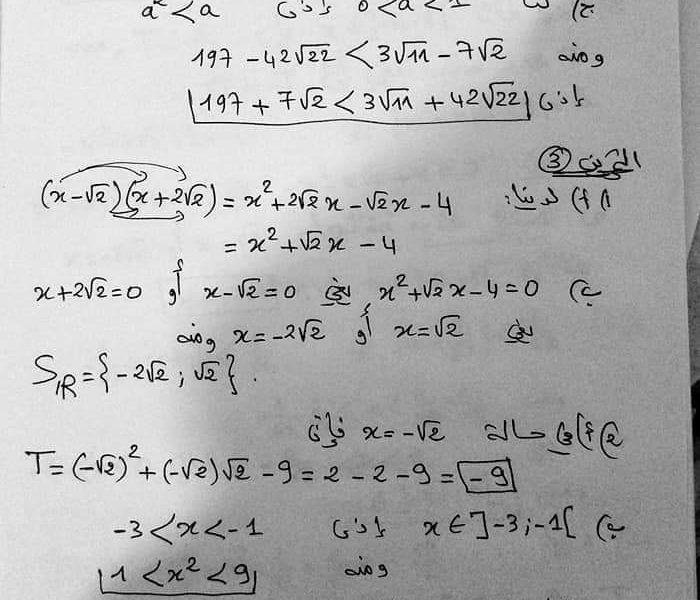 ج) ... 0<a<1 إذن a²<a
ومنه 197 - 42√22 < 3√11 - 7√2
إذن 197 + 7√2 < 3√11 + 42√22
التمرين ③
1) أ) لدينا: (x-√2)(x+2√2) = x²+2√2x-√2x-4
= x²+√2x-4
ب) x²+√2x-4=0 يعني x-√2=0 أو x+2√2=0
يعني x=√2 أو x=-2√2 ومنه
S_IR={-2√2;√2}.
2) أ) في حالة x=-√2 فإن
T=(-√2)²+(-√2)√2-9=2-2-9=-9
ب) x∈]-3;-1[ إذن -3<x<-1
ومنه 1<x²<9